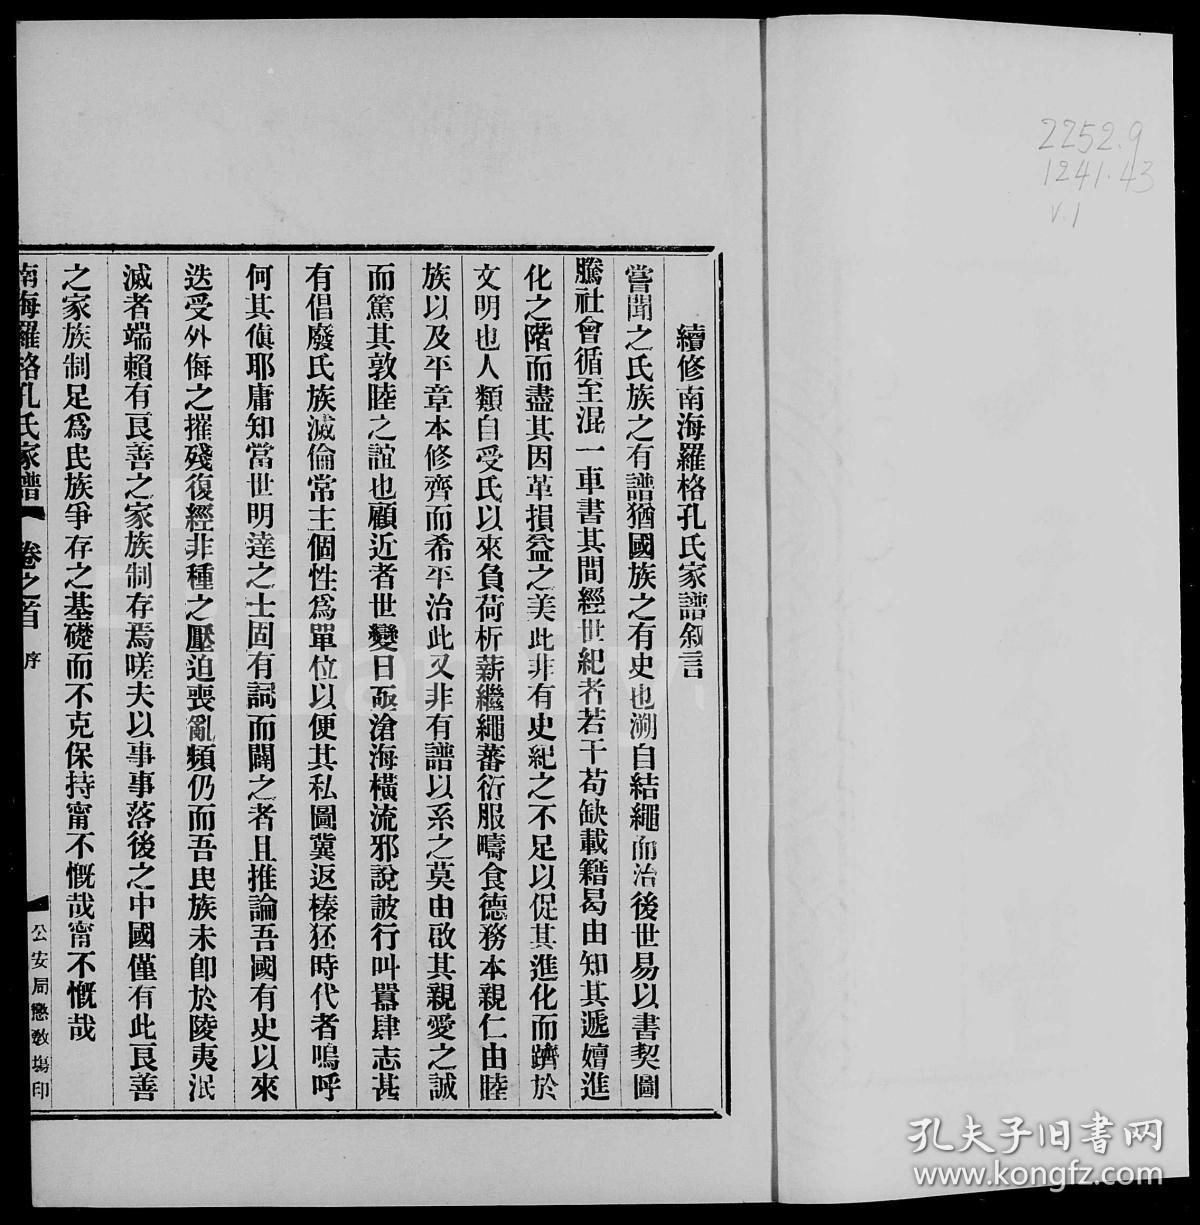 2252.9
1241.43
v.1
續修南海羅格孔氏家譜敘言
嘗聞之氏族之有譜猶國族之有史也溯自結繩而治後世易以書契圖
騰社會循至混一車書其間經世紀者若干苟缺載籍曷由知其遞嬗進
化之階而盡其因革損益之美此非有史紀之不足以促其進化而躋於
文明也人類自受氏以來負荷析薪繼繩蕃衍服疇食德務本親仁由睦
族以及平章本修齊而希平治此又非有譜以系之莫由啟其親愛之誠
而篤其敦睦之誼也顧近者世變日亟滄海橫流邪說詖行叫囂肆志甚
有倡廢氏族滅倫常主個性爲單位以便其私圖冀返榛狉時代者嗚呼
何其傎耶庸知當世明達之士固有詞而闢之者且推論吾國有史以來
迭受外侮之摧殘復經非種之壓迫喪亂頻仍而吾民族未卽於陵夷泯
滅者端賴有良善之家族制存焉嗟夫以事事落後之中國僅有此良善
之家族制足爲民族爭存之基礎而不克保持甯不慨哉甯不慨哉
南海羅格孔氏家譜 卷之首 序 公安局懲敎塲印
孔夫子旧书网
www.kongfz.com